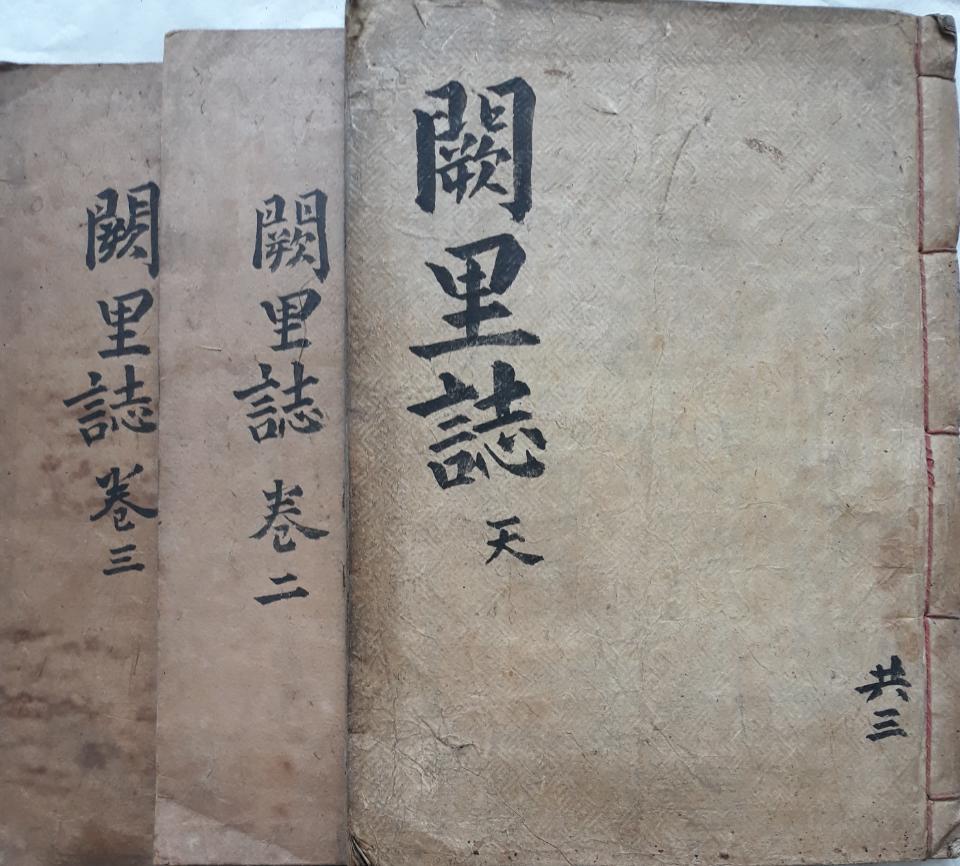 闕里誌 天
共三
闕里誌 卷二
闕里誌 卷三